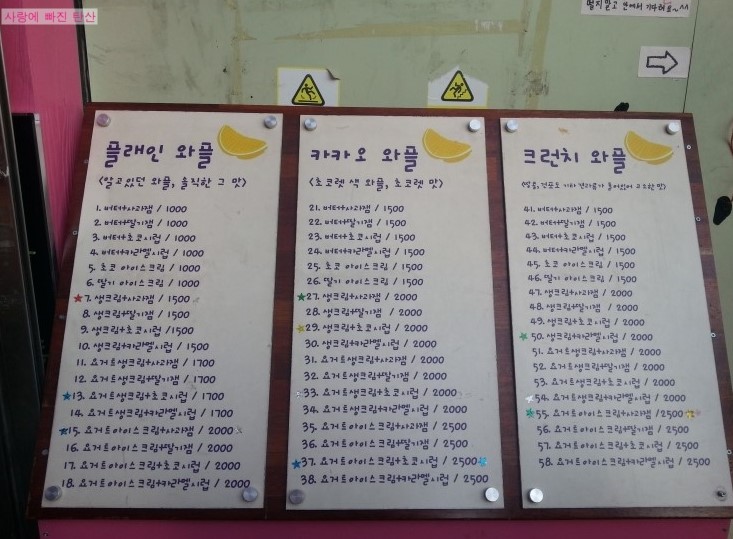 사랑에 빠진 탄산
떨지말고 안에서 기다려요~^^
플래인 와플
<알고있던 와플, 솔직한 그 맛>
1. 버터+사과잼 / 1000
2. 버터+딸기잼 / 1000
3. 버터+초코시럽 / 1000
4. 버터+카라멜시럽 / 1000
5. 초코 아이스크림 / 1000
6. 딸기 아이스크림 / 1000
7. 생크림+사과잼 / 1500
8. 생크림+딸기잼 / 1500
9. 생크림+초코시럽 / 1500
10. 생크림+카라멜시럽 / 1500
11. 요거트생크림+사과잼 / 1700
12. 요거트생크림+딸기잼 / 1700
13. 요거트생크림+초코시럽 / 1700
14. 요거트생크림+카라멜시럽 / 1700
15. 요거트아이스크림+사과잼 / 2000
16. 요거트아이스크림+딸기잼 / 2000
17. 요거트아이스크림+초코시럽 / 2000
18. 요거트아이스크림+카라멜시럽 / 2000
카카오 와플
<초코렛 색 와플, 초코렛 맛>
21. 버터+사과잼 / 1500
22. 버터+딸기잼 / 1500
23. 버터+초코시럽 / 1500
24. 버터+카라멜시럽 / 1500
25. 초코 아이스크림 / 1500
26. 딸기 아이스크림 / 1500
27. 생크림+사과잼 / 2000
28. 생크림+딸기잼 / 2000
29. 생크림+초코시럽 / 2000
30. 생크림+카라멜시럽 / 2000
31. 요거트생크림+사과잼 / 2000
32. 요거트생크림+딸기잼 / 2000
33. 요거트생크림+초코시럽 / 2000
34. 요거트생크림+카라멜시럽 / 2000
35. 요거트아이스크림+사과잼 / 2500
36. 요거트아이스크림+딸기잼 / 2500
37. 요거트아이스크림+초코시럽 / 2500
38. 요거트아이스크림+카라멜시럽 / 2500
크런치 와플
<땅콩, 건포도 기타 견과류가 들어있어 고소한 맛>
41. 버터+사과잼 / 1500
42. 버터+딸기잼 / 1500
43. 버터+초코시럽 / 1500
44. 버터+카라멜시럽 / 1500
45. 초코 아이스크림 / 1500
46. 딸기 아이스크림 / 1500
47. 생크림+사과잼 / 2000
48. 생크림+딸기잼 / 2000
49. 생크림+초코시럽 / 2000
50. 생크림+카라멜시럽 / 2000
51. 요거트생크림+사과잼 / 2000
52. 요거트생크림+딸기잼 / 2000
53. 요거트생크림+초코시럽 / 2000
54. 요거트생크림+카라멜시럽 / 2000
55. 요거트아이스크림+사과잼 / 2500
56. 요거트아이스크림+딸기잼 / 2500
57. 요거트아이스크림+초코시럽 / 2500
58. 요거트아이스크림+카라멜시럽 / 2500